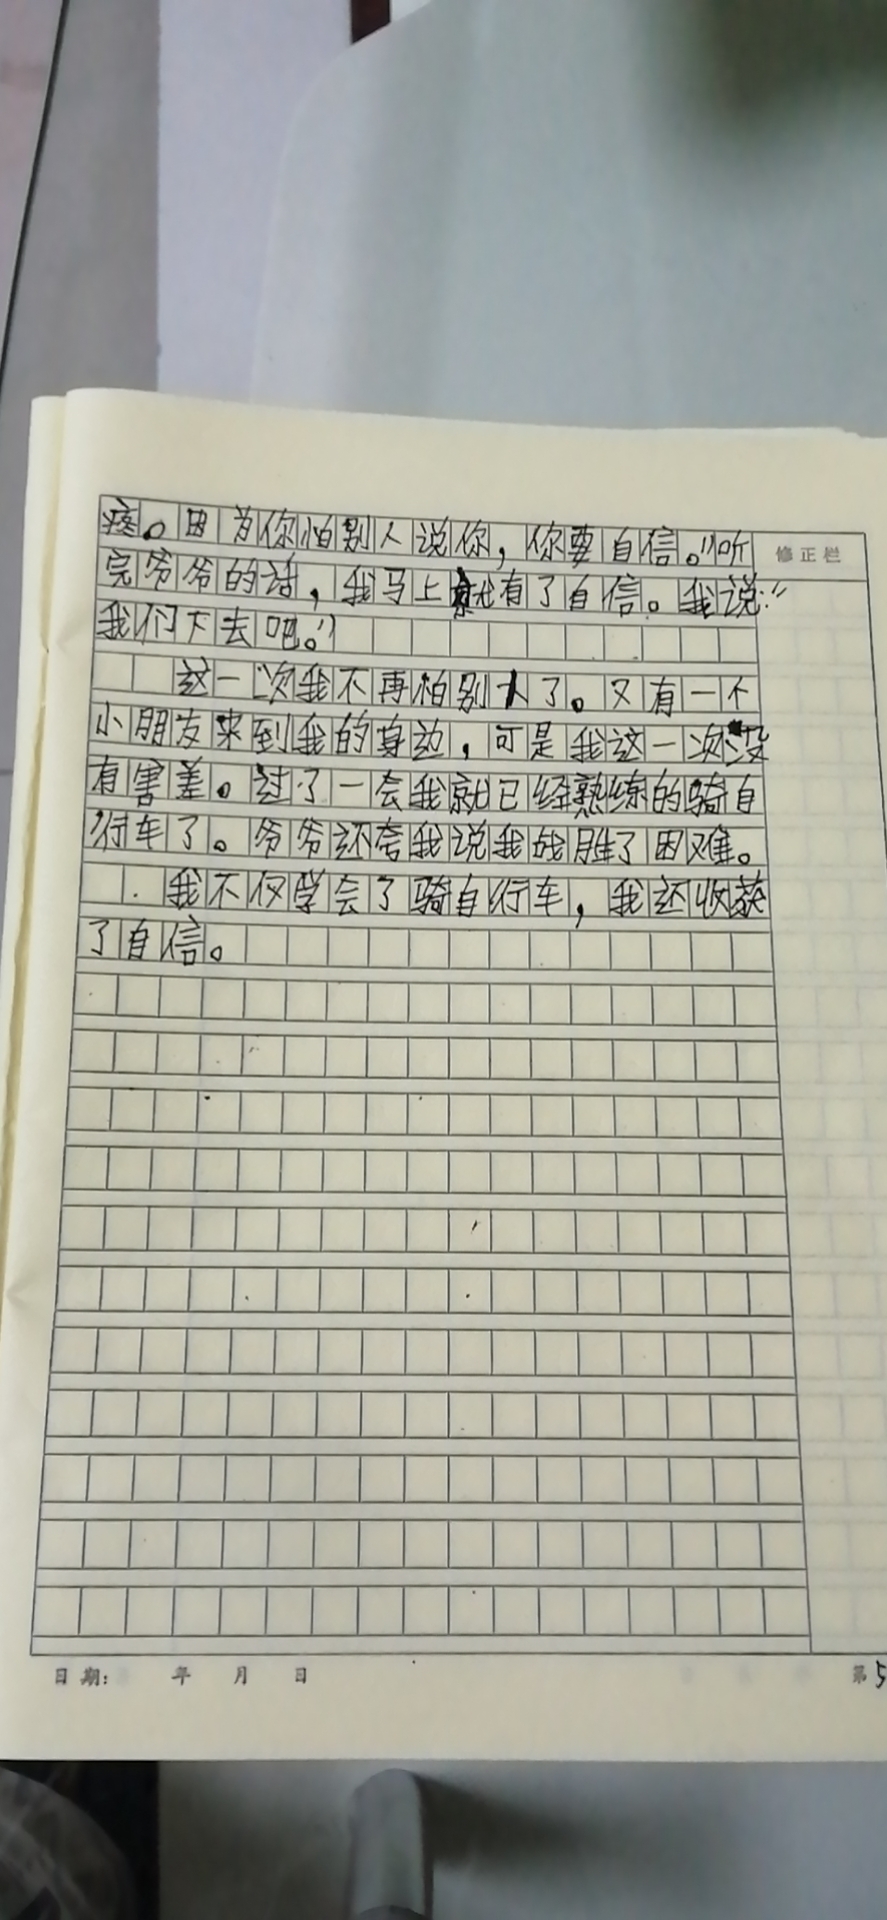 疼。因为你怕别人说你，你要自信。”听
修正栏
完爷爷的话，我马上就有了自信。我说：“
我们下去吧。”
这一次我不再怕别人了。又有一个
小朋友来到我的身边，可是我这一次没
有害羞。过了一会我就已经熟练的骑自
行车了。爷爷还夸我说我战胜了困难。
我不仅学会了骑自行车，我还收获
了自信。
日期： 年 月 日
第5